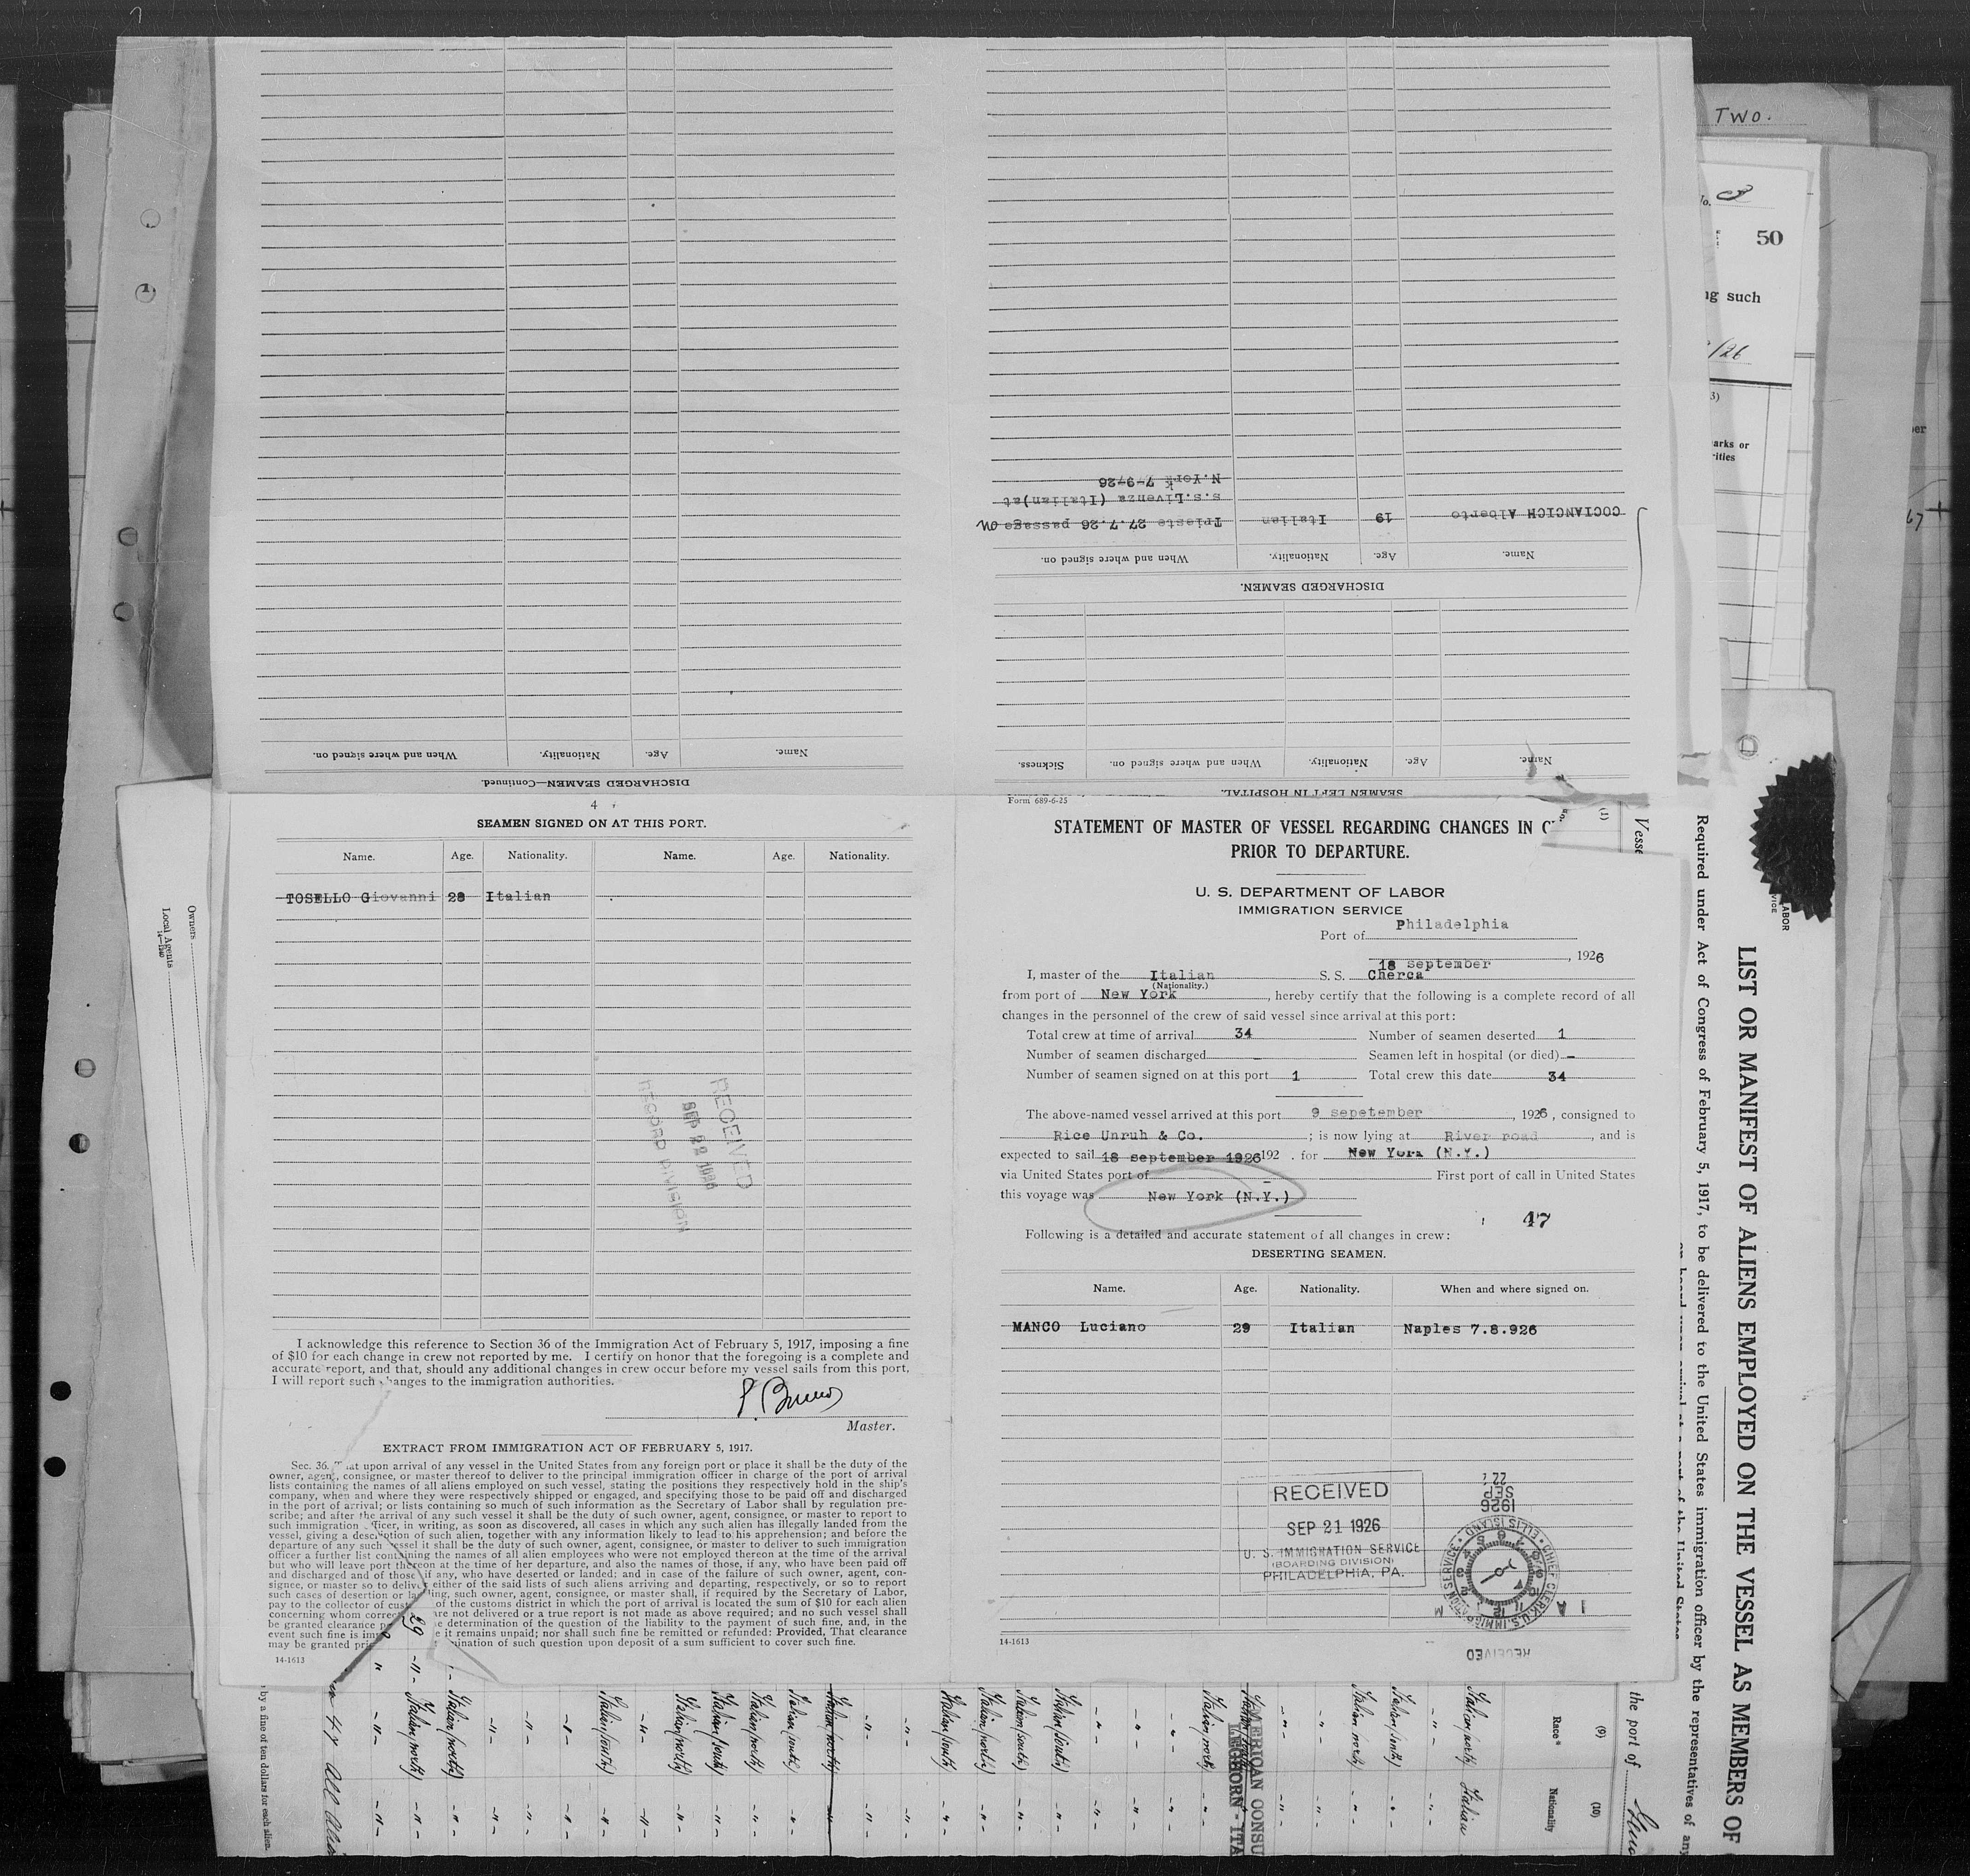 TWO.
No. 3
50
ng such
/26
3)
arks or
rities
N.York 7-9-26
s.s.Livenza (Italian)at
COCIANCICH Alberto 19 Italian Trieste 27.7.26 passage on
Name. Age. Nationality. When and where signed on.
DISCHARGED SEAMEN.
Name. Age. Nationality. When and where signed on. Sickness.
SEAMEN LEFT IN HOSPITAL.
Name. Age. Nationality. When and where signed on.
DISCHARGED SEAMEN—Continued.
4
SEAMEN SIGNED ON AT THIS PORT.
Name. Age. Nationality. Name. Age. Nationality.
TOSELLO Giovanni 28 Italian
RECEIVED
SEP 22 1926
RECORD DIVISION
I acknowledge this reference to Section 36 of the Immigration Act of February 5, 1917, imposing a fine
of $10 for each change in crew not reported by me. I certify on honor that the foregoing is a complete and
accurate report, and that, should any additional changes in crew occur before my vessel sails from this port,
I will report such changes to the immigration authorities.
Master.
EXTRACT FROM IMMIGRATION ACT OF FEBRUARY 5, 1917.
Sec. 36. That upon arrival of any vessel in the United States from any foreign port or place it shall be the duty of the
owner, agent, consignee, or master thereof to deliver to the principal immigration officer in charge of the port of arrival
lists containing the names of all aliens employed on such vessel, stating the positions they respectively hold in the ship's
company, when and where they were respectively shipped or engaged, and specifying those to be paid off and discharged
in the port of arrival; or lists containing so much of such information as the Secretary of Labor shall by regulation pre-
scribe; and after the arrival of any such vessel it shall be the duty of such owner, agent, consignee, or master to report to
such immigration officer, in writing, as soon as discovered, all cases in which any such alien has illegally landed from the
vessel, giving a description of such alien, together with any information likely to lead to his apprehension; and before the
departure of any such vessel it shall be the duty of such owner, agent, consignee, or master to deliver to such immigration
officer a further list containing the names of all alien employees who were not employed thereon at the time of the arrival
but who will leave port thereon at the time of her departure, and also the names of those, if any, who have been paid off
and discharged and of those if any, who have deserted or landed; and in case of the failure of such owner, agent, con-
signee, or master so to deliver either of the said lists of such aliens arriving and departing, respectively, or so to report
such cases of desertion or landing, such owner, agent, consignee, or master shall, if required by the Secretary of Labor,
pay to the collector of customs of the customs district in which the port of arrival is located the sum of $10 for each alien
concerning whom correct are not delivered or a true report is not made as above required; and no such vessel shall
be granted clearance the determination of the question of the liability to the payment of such fine, and, in the
event such fine is imposed it remains unpaid; nor shall such fine be remitted or refunded: Provided, That clearance
may be granted prior mination of such question upon deposit of a sum sufficient to cover such fine.
14-1613
Form 689-6-25
STATEMENT OF MASTER OF VESSEL REGARDING CHANGES IN C
PRIOR TO DEPARTURE.
U. S. DEPARTMENT OF LABOR
IMMIGRATION SERVICE
Port of Philadelphia
18 september, 1926
I, master of the Italian S. S. Cherca
(Nationality.)
from port of New York, hereby certify that the following is a complete record of all
changes in the personnel of the crew of said vessel since arrival at this port:
Total crew at time of arrival 34 Number of seamen deserted 1
Number of seamen discharged - Seamen left in hospital (or died) -
Number of seamen signed on at this port 1 Total crew this date 34
The above-named vessel arrived at this port 9 sepetember, 1926, consigned to
Rice Unruh & Co.; is now lying at River road, and is
expected to sail 18 september 1926 192 . for New York (N.Y.)
via United States port of - First port of call in United States
this voyage was New York (N.Y.)
47
Following is a detailed and accurate statement of all changes in crew:
DESERTING SEAMEN.
Name. Age. Nationality. When and where signed on.
MANCO Luciano 29 Italian Naples 7.8.926
RECEIVED
SEP 21 1926
U. S. IMMIGRATION SERVICE
(BOARDING DIVISION)
PHILADELPHIA, PA.
1926
SEP
22
CHIEF CLERK U.S. IMMIGRATION SERVICE
ELLIS ISLAND
RECEIVED
14-1613
Owners
Local Agents
LIST OR MANIFEST OF ALIENS EMPLOYED ON THE VESSEL AS MEMBERS OF
Required under Act of Congress of February 5, 1917, to be delivered to the United States immigration officer by the representatives of any
Vesse
(1)
the port of
(9)
Race*
(10)
Nationality
Italian (north) Italian
Italian (south)
Italian (north)
AMERICAN CONSU
LEGHORN - ITA
by a fine of ten dollars for each alien.